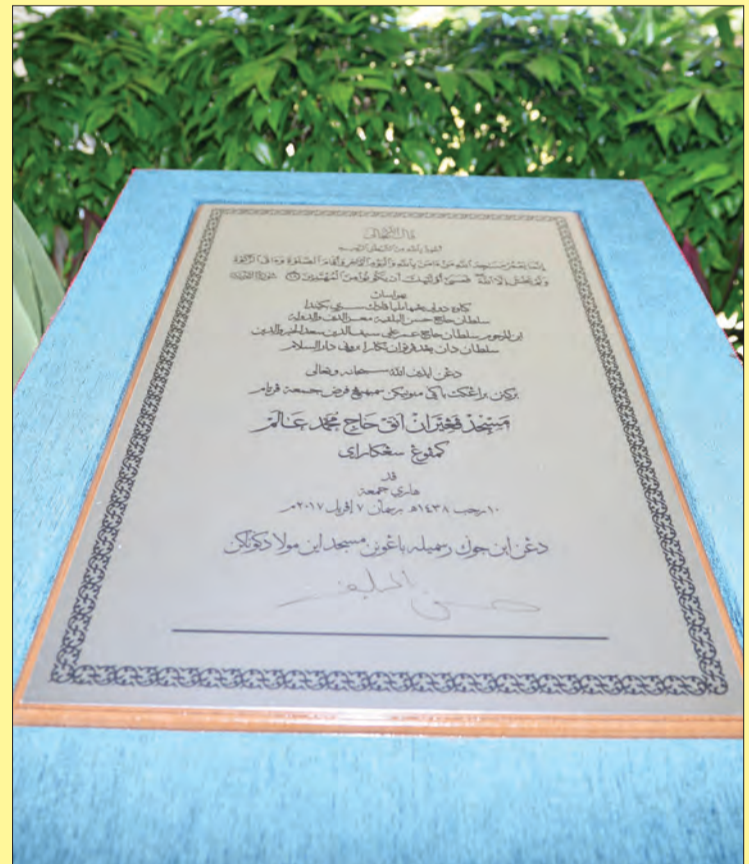 قال الله تعالى
أعوذ بالله من الشيطان الرجيم
إِنَّمَا يَعْمُرُ مَسَاجِدَ اللَّهِ مَنْ ءَامَنَ بِاللَّهِ وَالْيَوْمِ الْآخِرِ وَأَقَامَ الصَّلَوٰةَ وَءَاتَى الزَّكَوٰةَ
وَلَمْ يَخْشَ إِلَّا اللَّهَ فَعَسَىٰ أُو۟لَـٰئِكَ أَن يَكُونُوا مِنَ الْمُهْتَدِينَ سورة التوبة
بهواسان
كباوه دولي يڠ مها مليا ڤادوك سري بڬيندا
سلطان حاج حسن البلقيه معز الدين والدوله
ابن المرحوم سلطان حاج عمر علي سيف الدين سعد الخير والدين
سلطان دان يڠ دڤرتوان نڬارا بروني دارالسلام
دڠن ايذن الله سبحانه وتعالى
بركنن برأڠكت باݢي منونيكن سمبهيڠ فرض جمعة ڤرتام
مسجد ڤڠيرن انق حاج محمد عالم
كمڤوڠ سڠكاراي
ڤد
هاري جمعة
١٠ رجب ١٤٣٨ه برسمأن ٧ إڤريل ٢٠١٧م
دڠن اين جوك رسميله باڠونن مسجد اين مولا دݢوناكن
حسن البلقيه